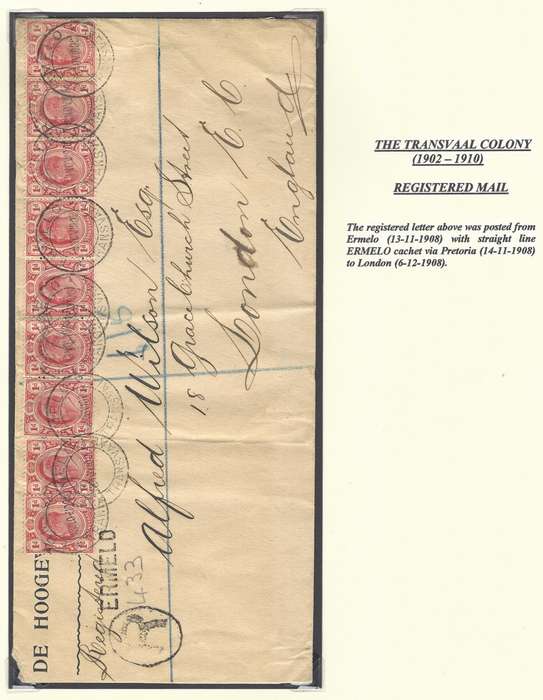 DE HOOGE
Registered
ERMELO
433
R
Alfred Wilson Esq
18 Gracechurch Street
London E. C.
England
THE TRANSVAAL COLONY
(1902 – 1910)
REGISTERED MAIL
The registered letter above was posted from
Ermelo (13-11-1908) with straight line
ERMELO cachet via Pretoria (14-11-1908)
to London (6-12-1908).